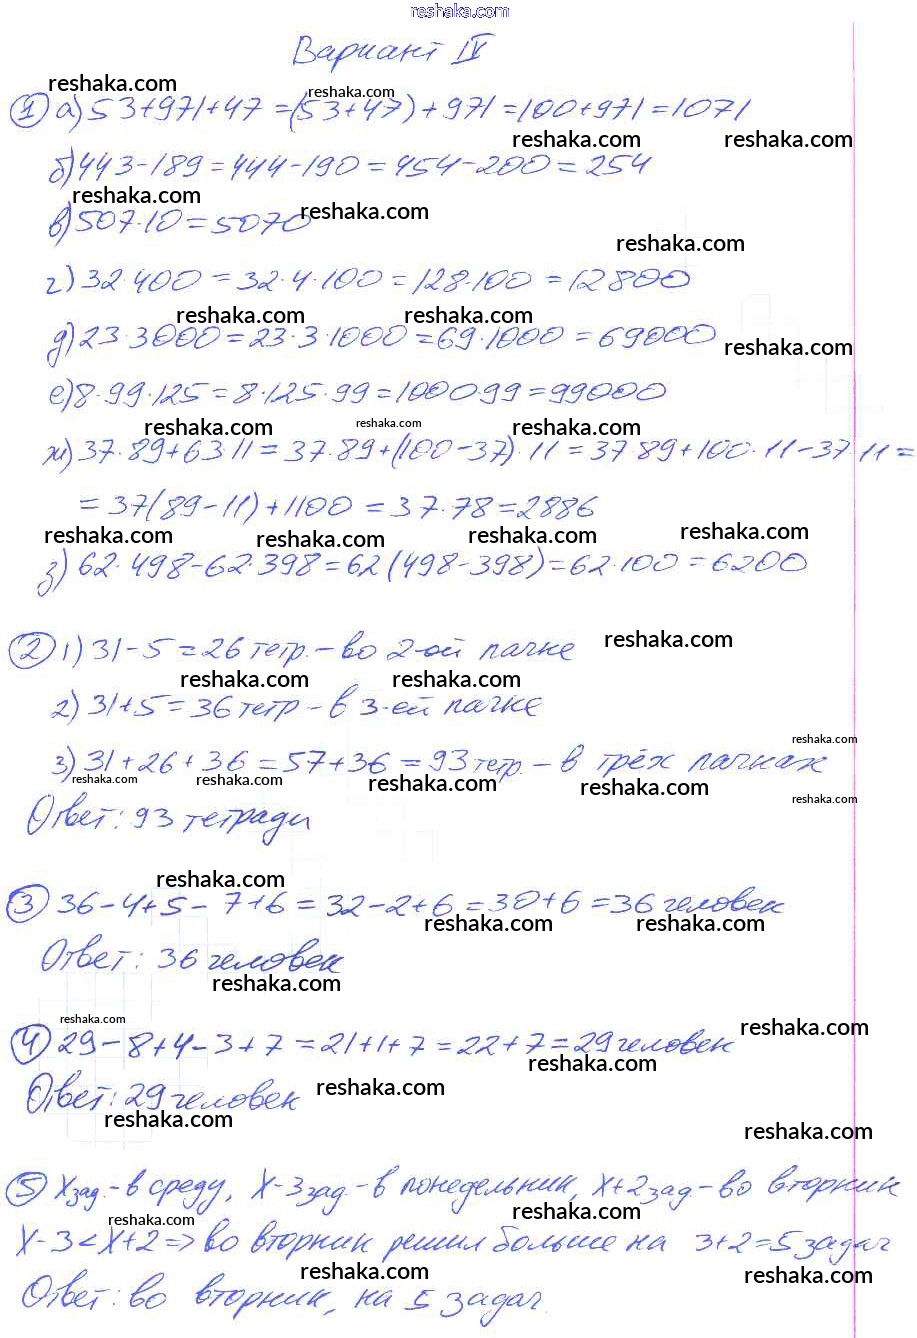 reshaka.com
Вариант IV
reshaka.com reshaka.com
① а) 53+971+47 =(53+47)+971=100+971=1071
reshaka.com reshaka.com
б) 443-189=444-190=454-200=254
reshaka.com reshaka.com
в) 507·10=5070
reshaka.com
г) 32·400 =32·4·100=128·100=12800
reshaka.com reshaka.com
д) 23·3000=23·3·1000=69·1000=69000
reshaka.com
е) 8·99·125=8·125·99=1000·99=99000
reshaka.com reshaka.com reshaka.com
ж) 37·89+63·11=37·89+(100-37)·11=37·89+100·11-37·11=
=37(89-11)+1100=37·78=2886
reshaka.com reshaka.com reshaka.com reshaka.com
з) 62·498-62·398=62(498-398)=62·100=6200
reshaka.com
② 1) 31-5=26 тетр.-во 2-ой пачке
reshaka.com reshaka.com
2) 31+5=36 тетр-в 3-ей пачке
reshaka.com
3) 31+26+36=57+36=93 тетр.-в трёх пачках
reshaka.com reshaka.com reshaka.com reshaka.com
reshaka.com
Ответ: 93 тетради
reshaka.com
③ 36-4+5-7+6=32-2+6=30+6=36 человек
reshaka.com reshaka.com
Ответ: 36 человек
reshaka.com
reshaka.com reshaka.com
④ 29-8+4-3+7=21+1+7=22+7=29 человек
reshaka.com
Ответ: 29 человек
reshaka.com
reshaka.com reshaka.com
⑤ X зад.-в среду, X-3 зад.-в понедельник, X+2 зад-во вторник
reshaka.com reshaka.com
X-3<X+2=> во вторник решил больше на 3+2=5 задач
reshaka.com reshaka.com
Ответ: во вторник, на 5 задач.